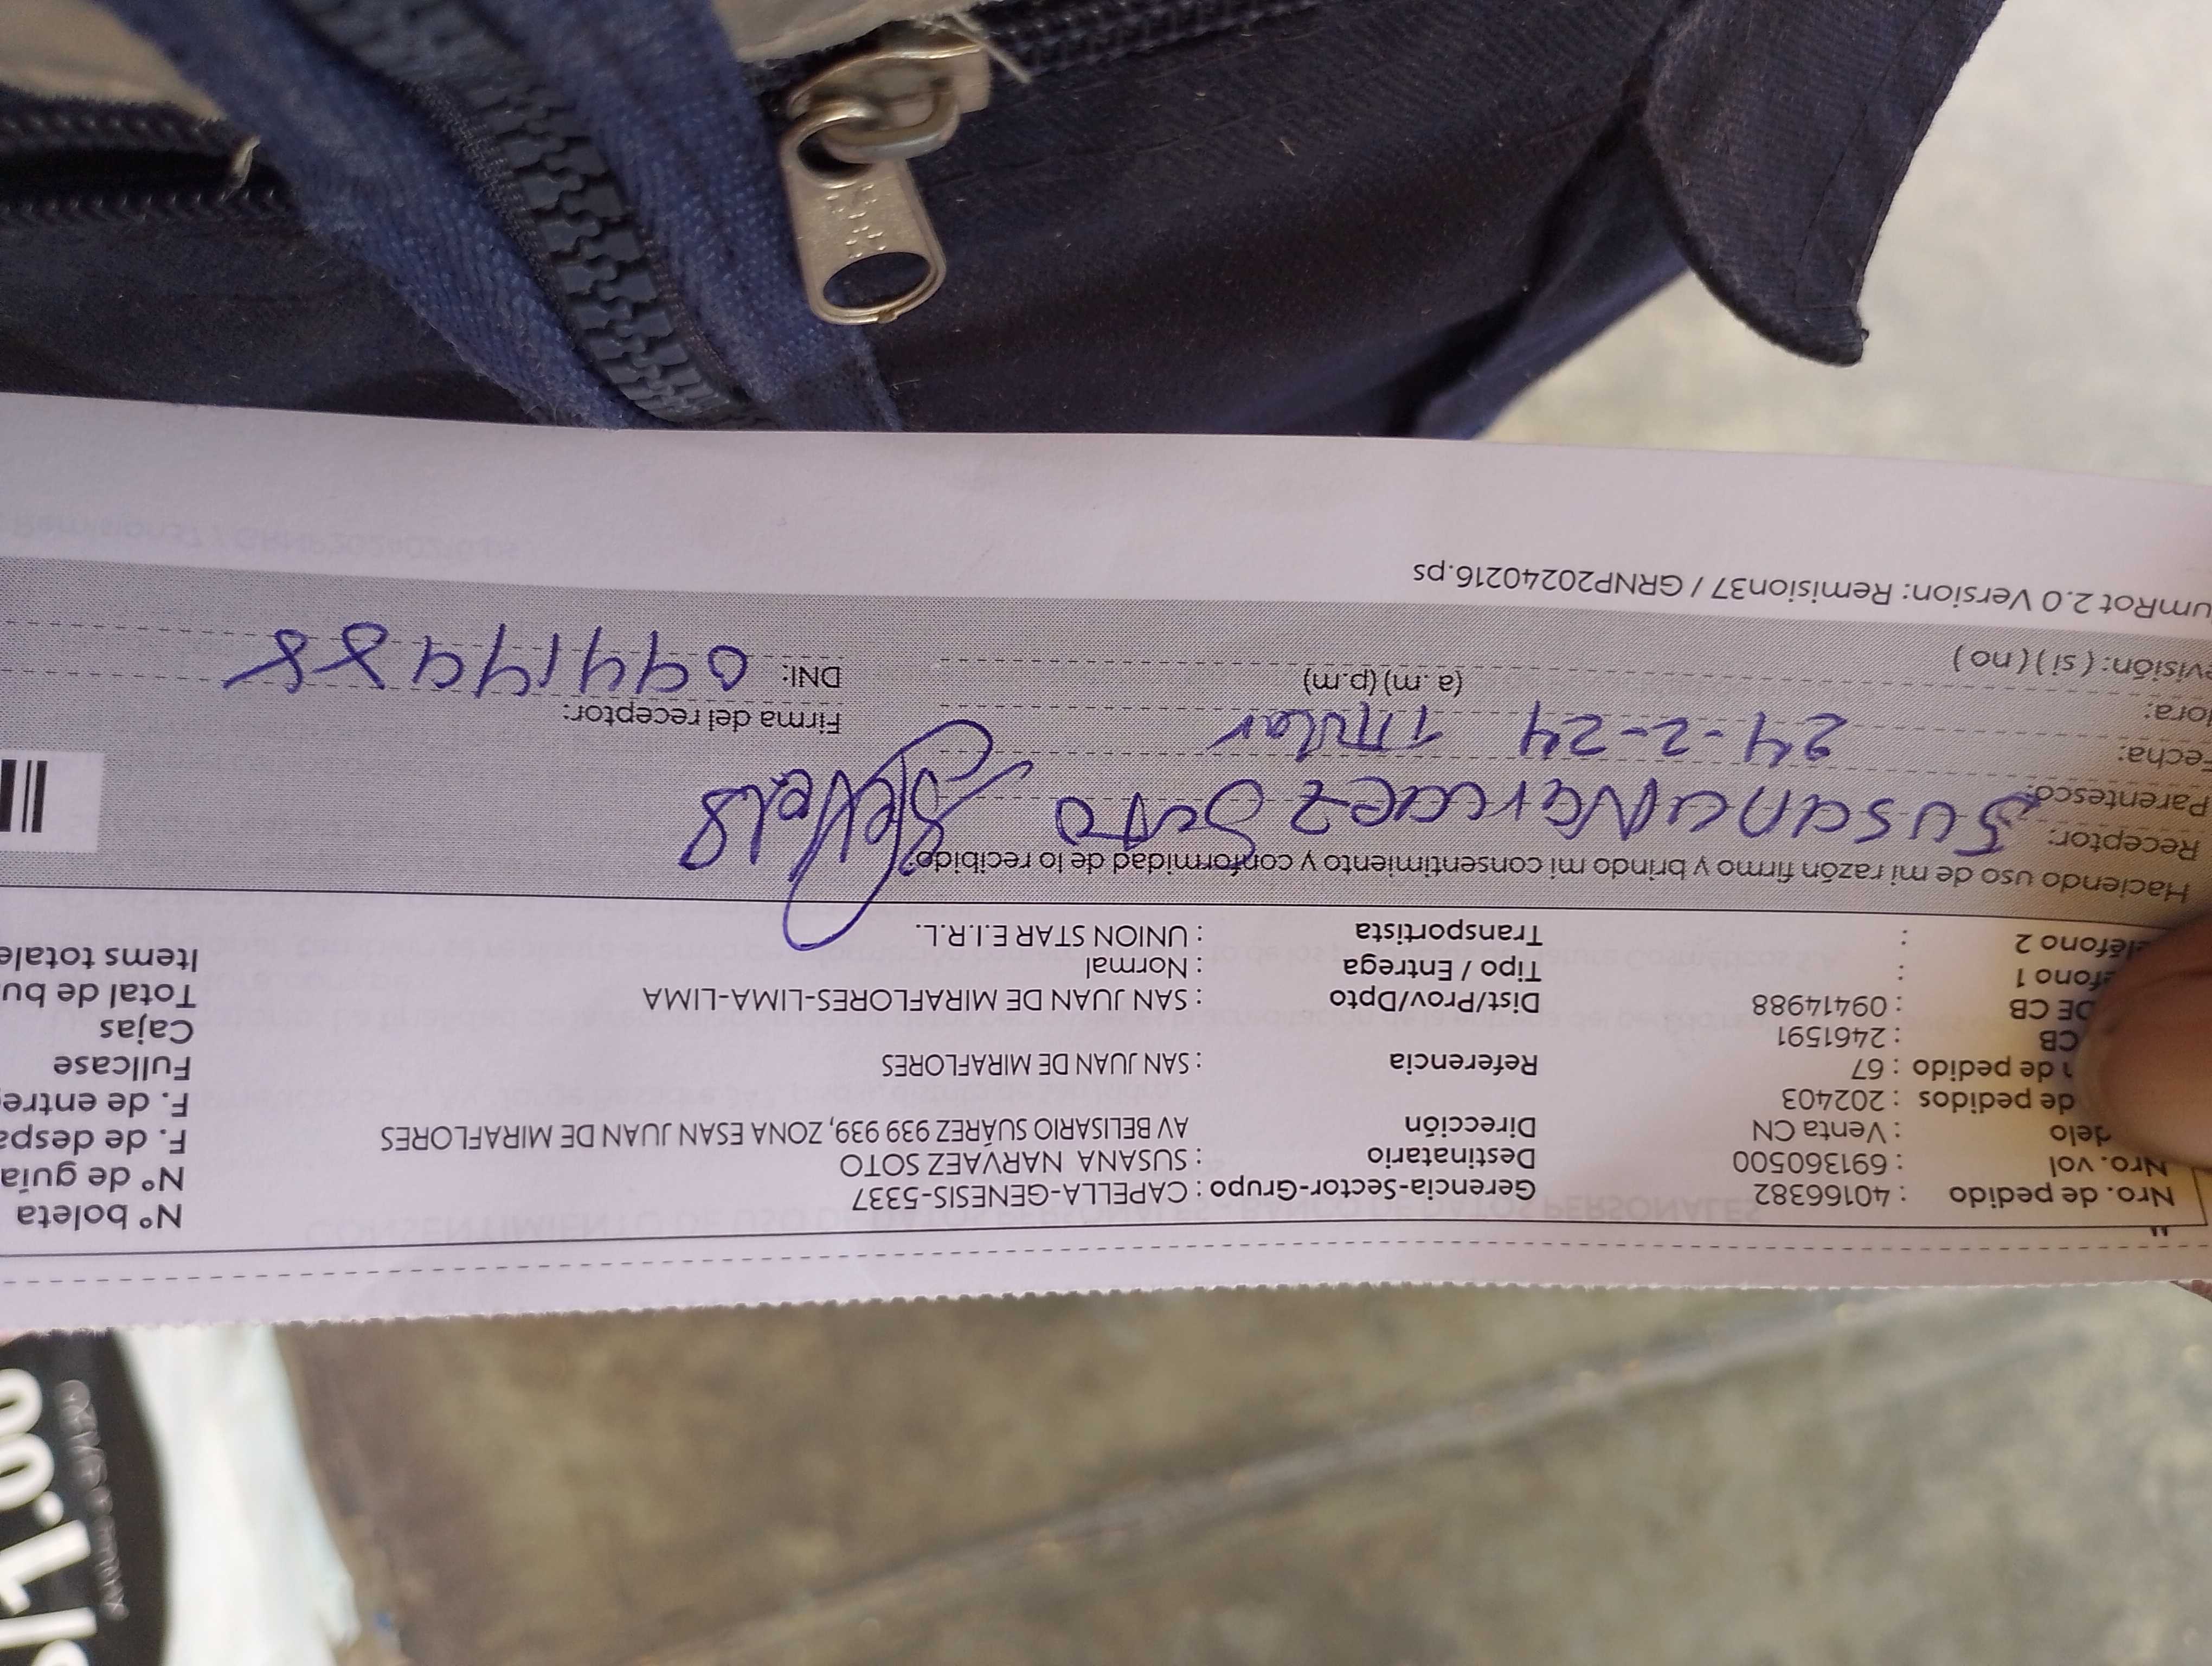 Nro. de pedido : 40166382 Gerencia-Sector-Grupo : CAPELLA-GENESIS-5337 N° boleta
Nro. vol : 691360500 Destinatario : SUSANA NARVAEZ SOTO N° de guía
delo : Venta CN Dirección AV BELISARIO SUÁREZ 939 939, ZONA ESAN JUAN DE MIRAFLORES F. de despa
de pedidos : 202403 F. de entre
de pedido : 67 Referencia : SAN JUAN DE MIRAFLORES Fullcase
CB : 2461591 Cajas
DE CB : 09414988 Dist/Prov/Dpto : SAN JUAN DE MIRAFLORES-LIMA-LIMA Total de bu
éfono 1 : Tipo / Entrega : Normal Items totale
eléfono 2 : Transportista : UNION STAR E.I.R.L.
Haciendo uso de mi razón firmo y brindo mi consentimiento y conformidad de lo recibido:
Receptor: Susana Narvaez Soto
Parentesco:
Fecha: 24-2-24 Titular Firma del receptor:
Hora: (a. m) (p.m) DNI: 09414988
evisión: ( si ) ( no )
umRot 2.0 Version: Remision37 / GRNP20240216.ps